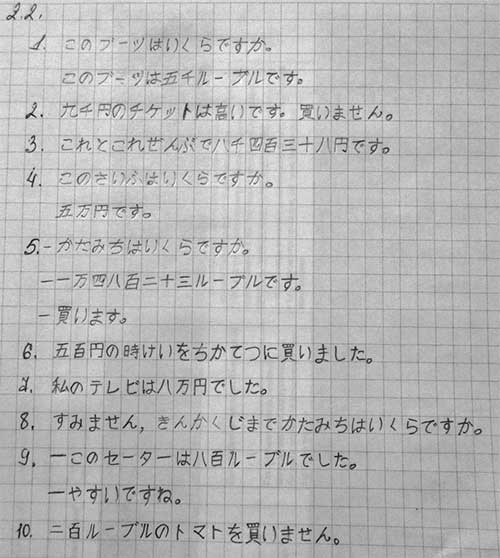 2.2.
1. このブーツはいくらですか。
このブーツは五千ルーブルです。
2. 九千円のチケットは高いです。買いません。
3. これとこれぜんぶで八千四百三十八円です。
4. このさいふはいくらですか。
五万円です。
5. - かたみちはいくらですか。
- 一万四八百二十三ルーブルです。
- 買います。
6. 五百円の時けいをちかてつに買いました。
7. 私のテレビは八万円でした。
8. すみません, きんかくじまでかたみちはいくらですか。
9. - このセーターは八百ルーブルでした。
- やすいですね。
10. 二百ルーブルのトマトを買いません。